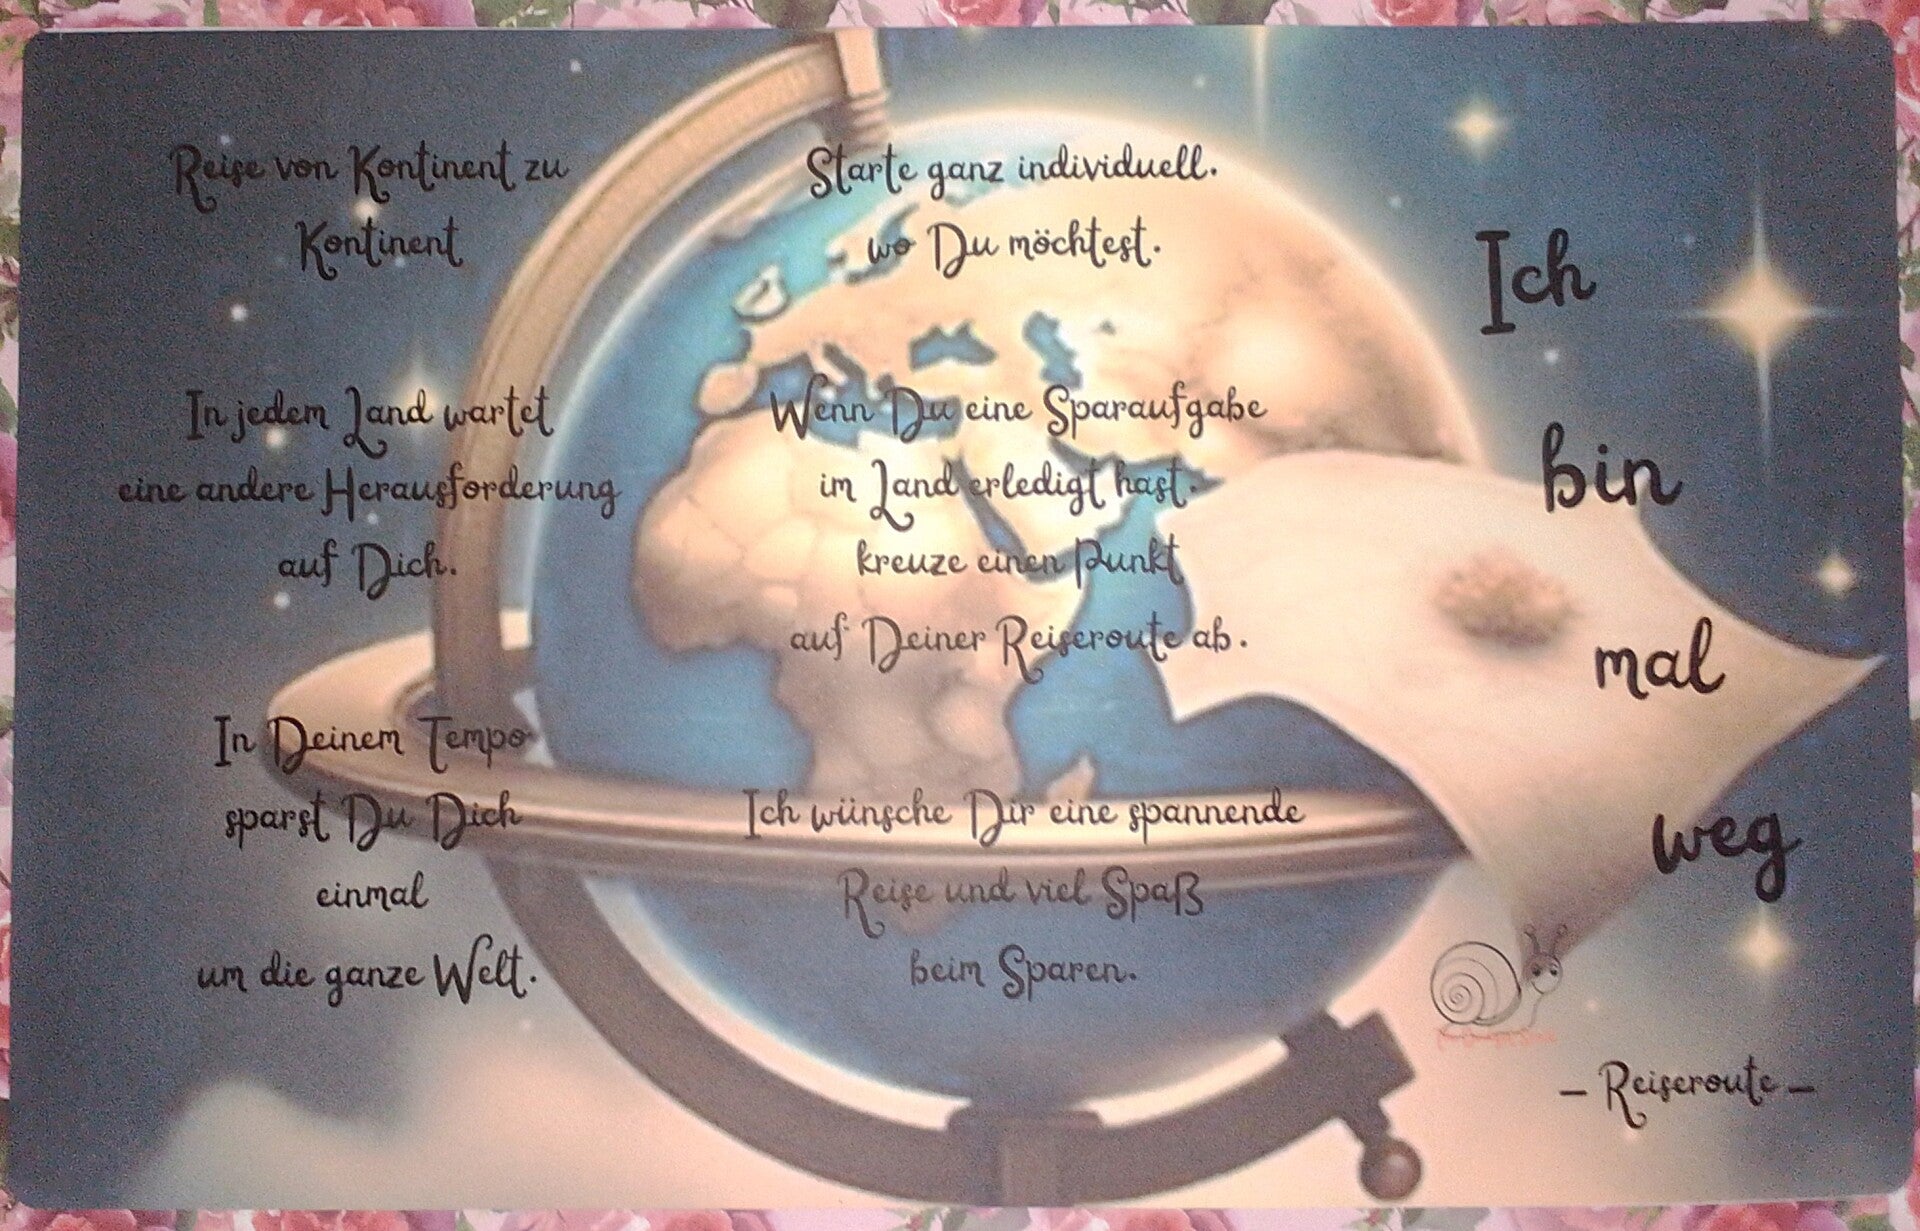 Reise von Kontinent zu
Kontinent
In jedem Land wartet
eine andere Herausforderung
auf Dich.
In Deinem Tempo
sparst Du Dich
einmal
um die ganze Welt.
Starte ganz individuell.
wo Du möchtest.
Wenn Du eine Sparaufgabe
im Land erledigt hast.
kreuze einen Punkt
auf Deiner Reiseroute ab.
Ich wünsche Dir eine spannende
Reise und viel Spaß
beim Sparen.
Ich
bin
mal
weg
– Reiseroute –